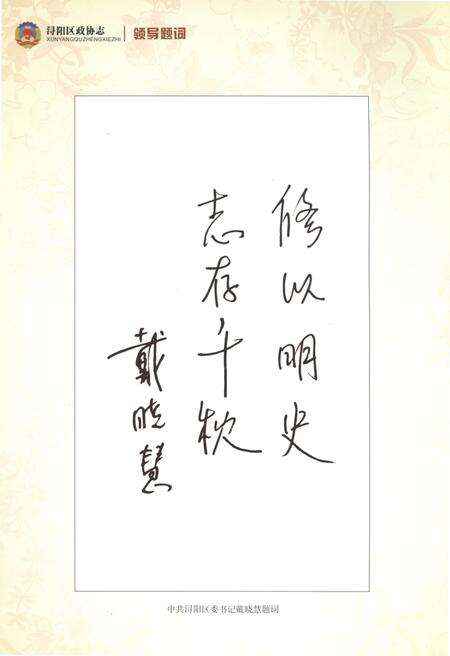 浔阳区政协志
XUNYANGQUZHENGXIEZHI
领导题词
修以明史
志存千秋
戴晓慧
中共浔阳区委书记戴晓慧题词